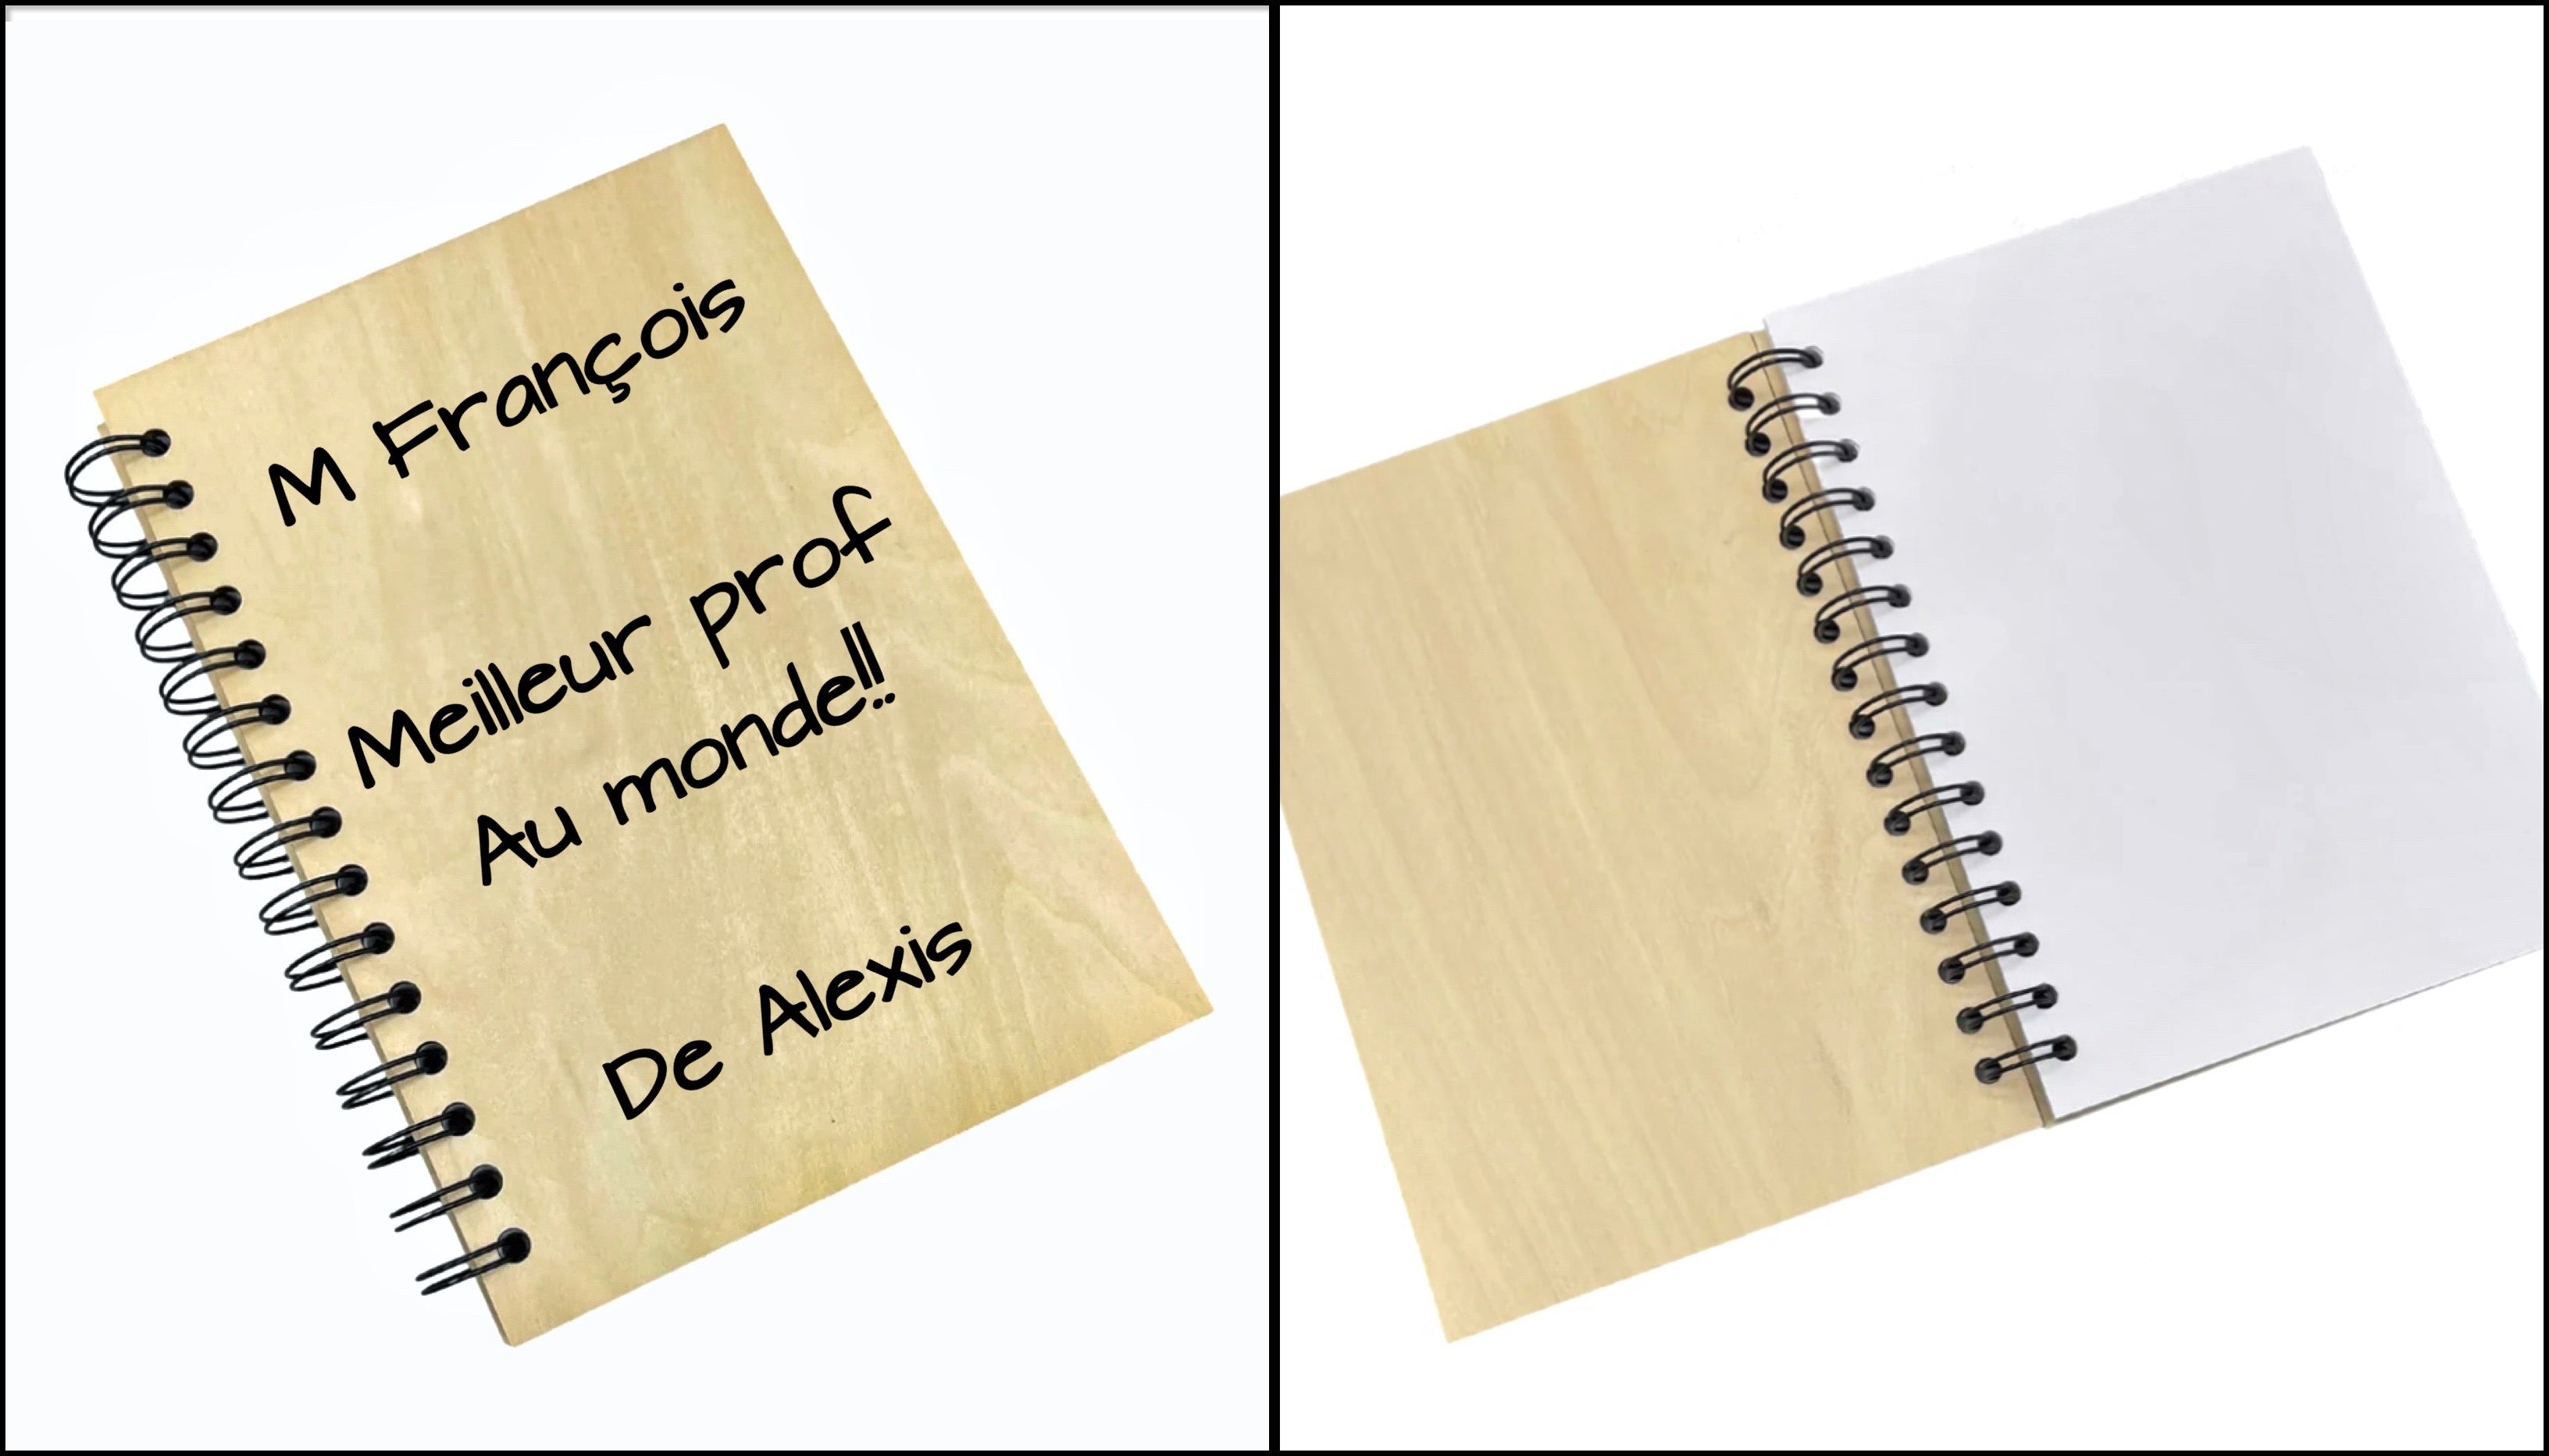 M François
Meilleur prof
Au monde!!
De Alexis